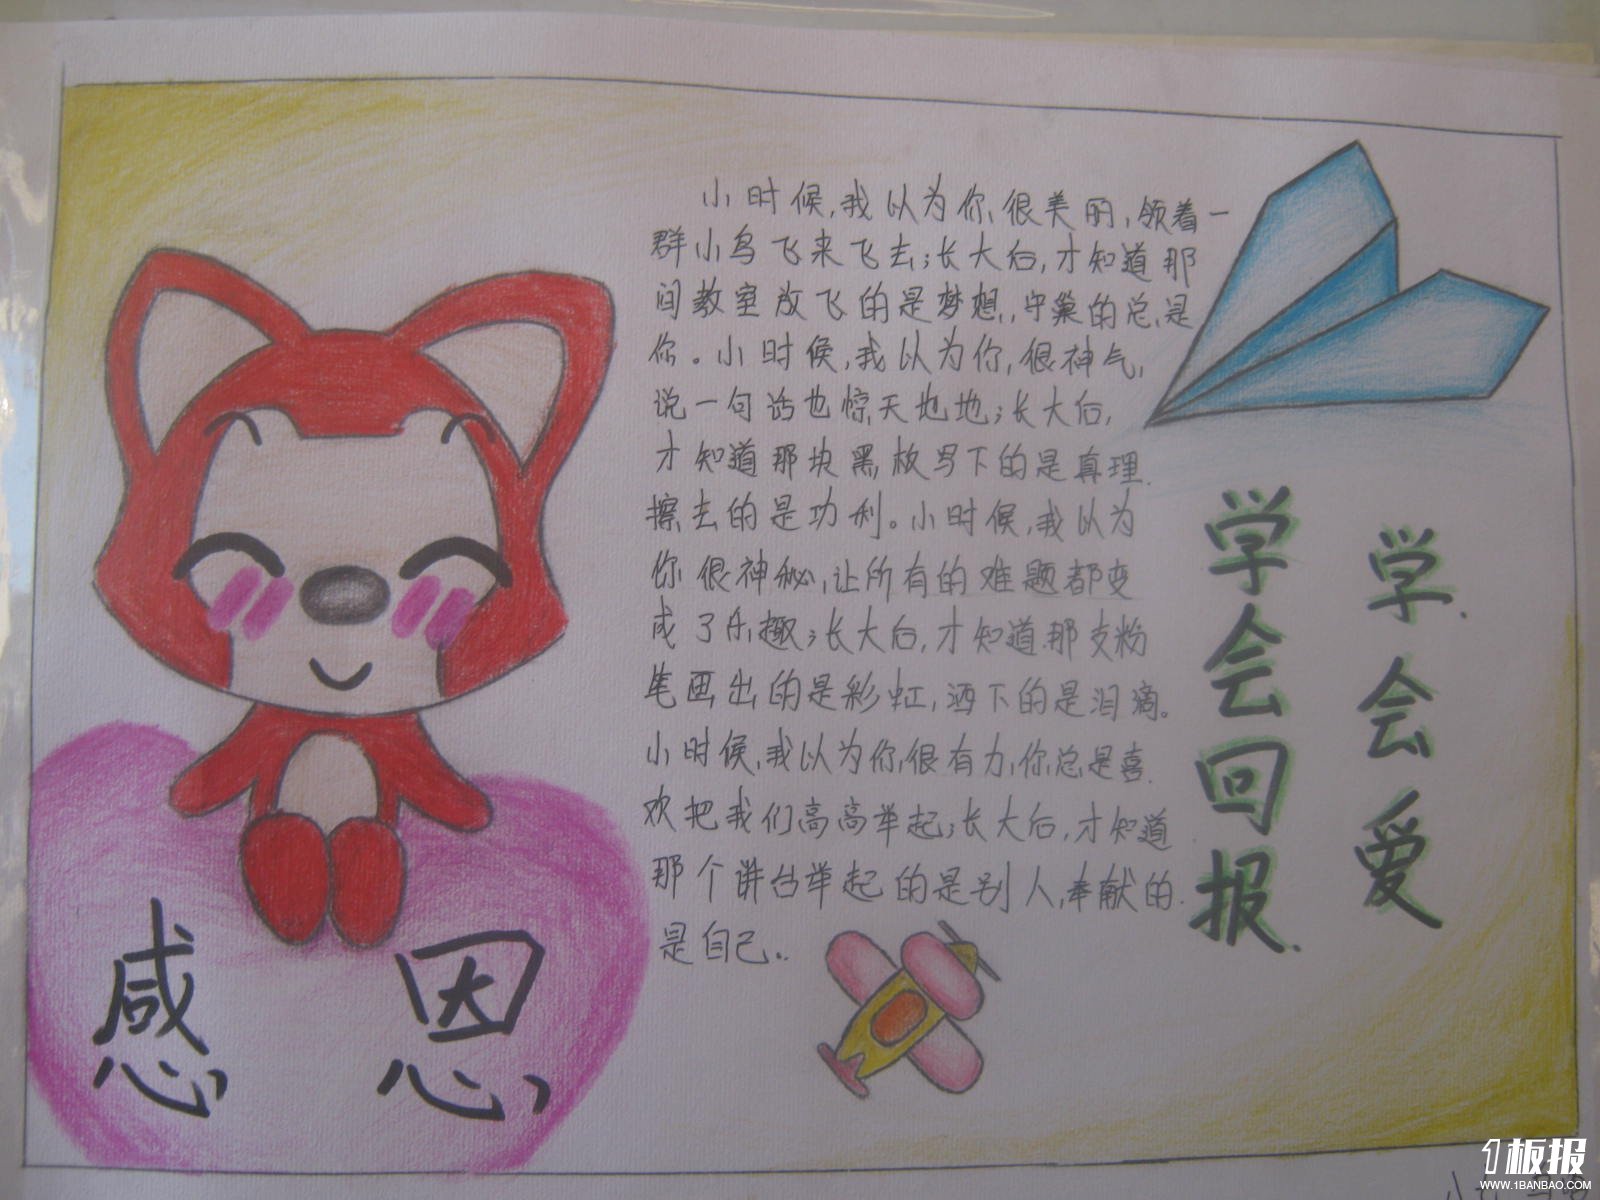 小时候,我以为你很美丽,领着一
群小鸟飞来飞去;长大后,才知道那
间教室放飞的是梦想,守巢的总是
你。小时候,我以为你很神气,
说一句话也惊天地地;长大后,
才知道那块黑板写下的是真理
擦去的是功利。小时候,我以为
你很神秘,让所有的难题都变
成了乐趣;长大后,才知道那支粉
笔画出的是彩虹,洒下的是泪滴。
小时候,我以为你很有力,你总是喜
欢把我们高高举起;长大后,才知道
那个讲台举起的是别人,奉献的
是自己。
学会爱
学会回报
感恩
1板报
WWW.1BANBAO.COM